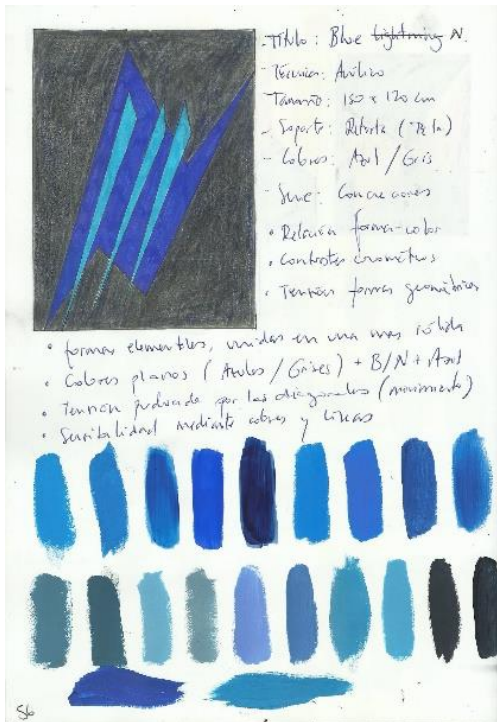 - Título: Blue Lightning N.
- Técnica: Acrílico
Tamaño: 150 x 120 cm
- Soporte: Retorta (Tela)
- Colores: Azul / Gris
- Serie: Concreciones
• Relación forma-color
• Contrastes cromáticos
• Tensión formas geométricas
• formas elementales, unidas en una más sólida
• Colores planos (Azules / Grises) + B/N + Azul
• Tensión producida por las diagonales (movimiento)
• Sensibilidad mediante colores y líneas
56